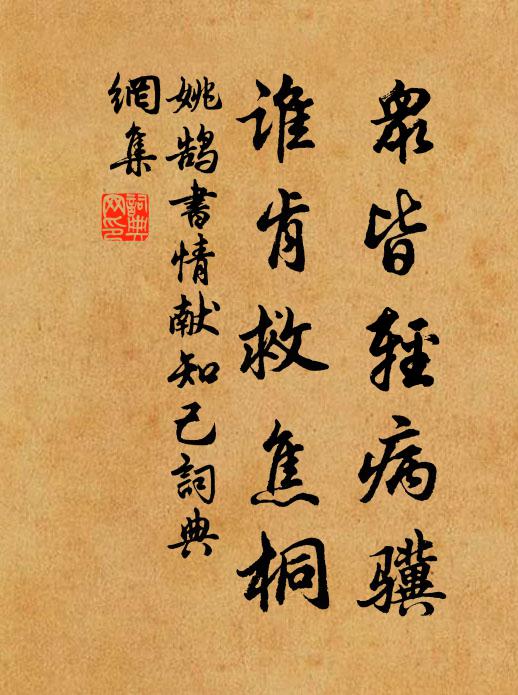 眾皆輕病骥
誰肯救焦桐
姚鹄書情献知己詞典
網集
詞典网印